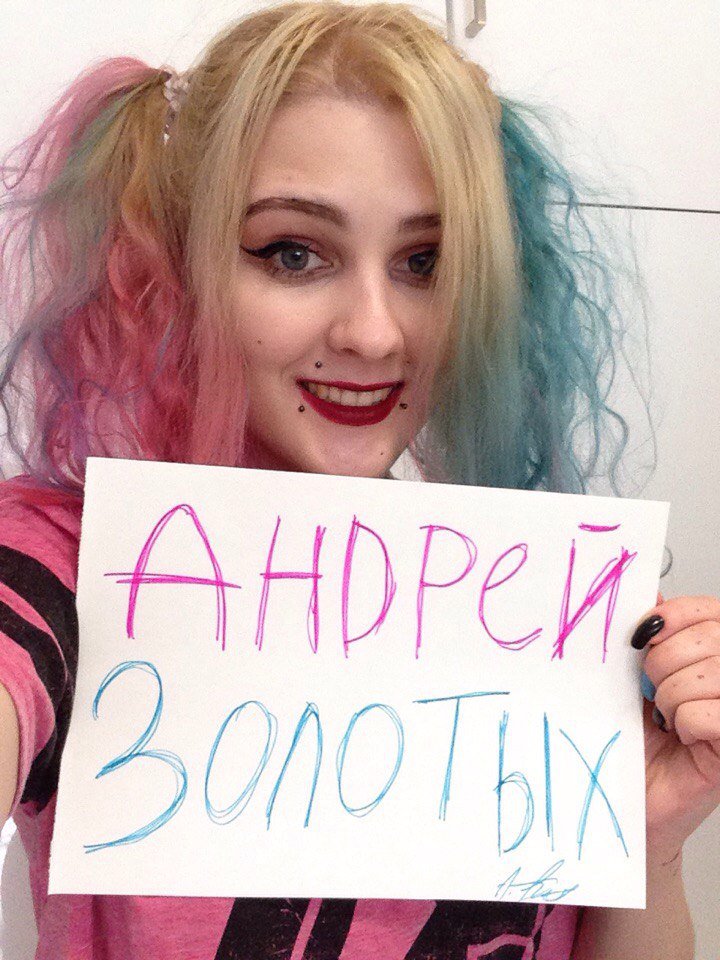 АНДРЕЙ
ЗОЛОТЫХ